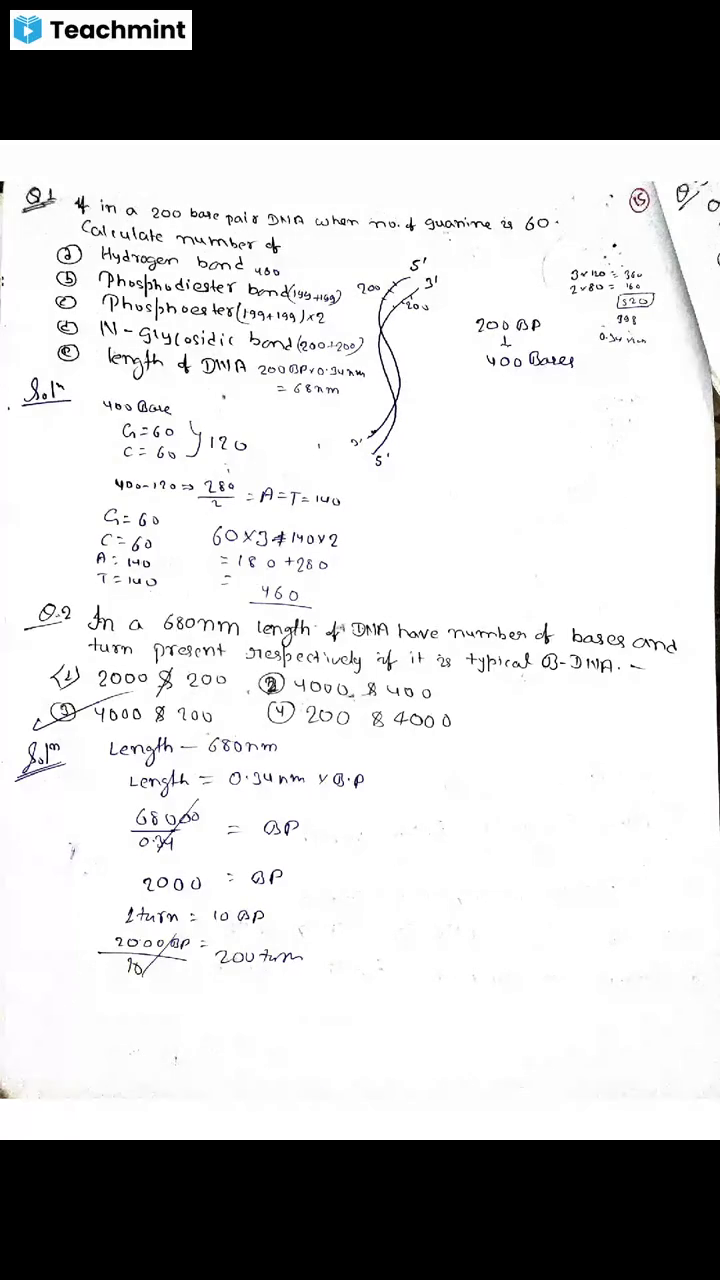 Teachmint
Q1 If in a 200 base pair DNA when no. of guanine is 60.
Calculate number of
(a) Hydrogen bond 400
(b) Phosphodiester bond (199+199)
(c) Phosphoester (199+199)×2
(d) N-glycosidic bond (200+200)
(e) length of DNA 200BP×0.34nm
= 68nm
5'
3'
200
200
3'
5'
200 BP
↓
400 Bases
15
3×120 = 360
2×80 = 160
520
0.34 nm
Solⁿ
400 Base
G=60
C=60 } 120
400-120 ⇒ 280/2 = A=T=140
G=60
C=60
A=140
T=140
60×3+140×2
=180+280
=
460
Q.2 In a 680nm length of DNA have number of bases and
turn present respectively if it is typical B-DNA. -
(1) 2000 & 200 (2) 4000 & 400
(3) 4000 & 200 (4) 200 & 4000
Solⁿ Length — 680nm
Length = 0.34nm × B.P
68000/0.34 = BP
2000 = BP
1turn = 10 BP
2000BP/10 = 200 turn